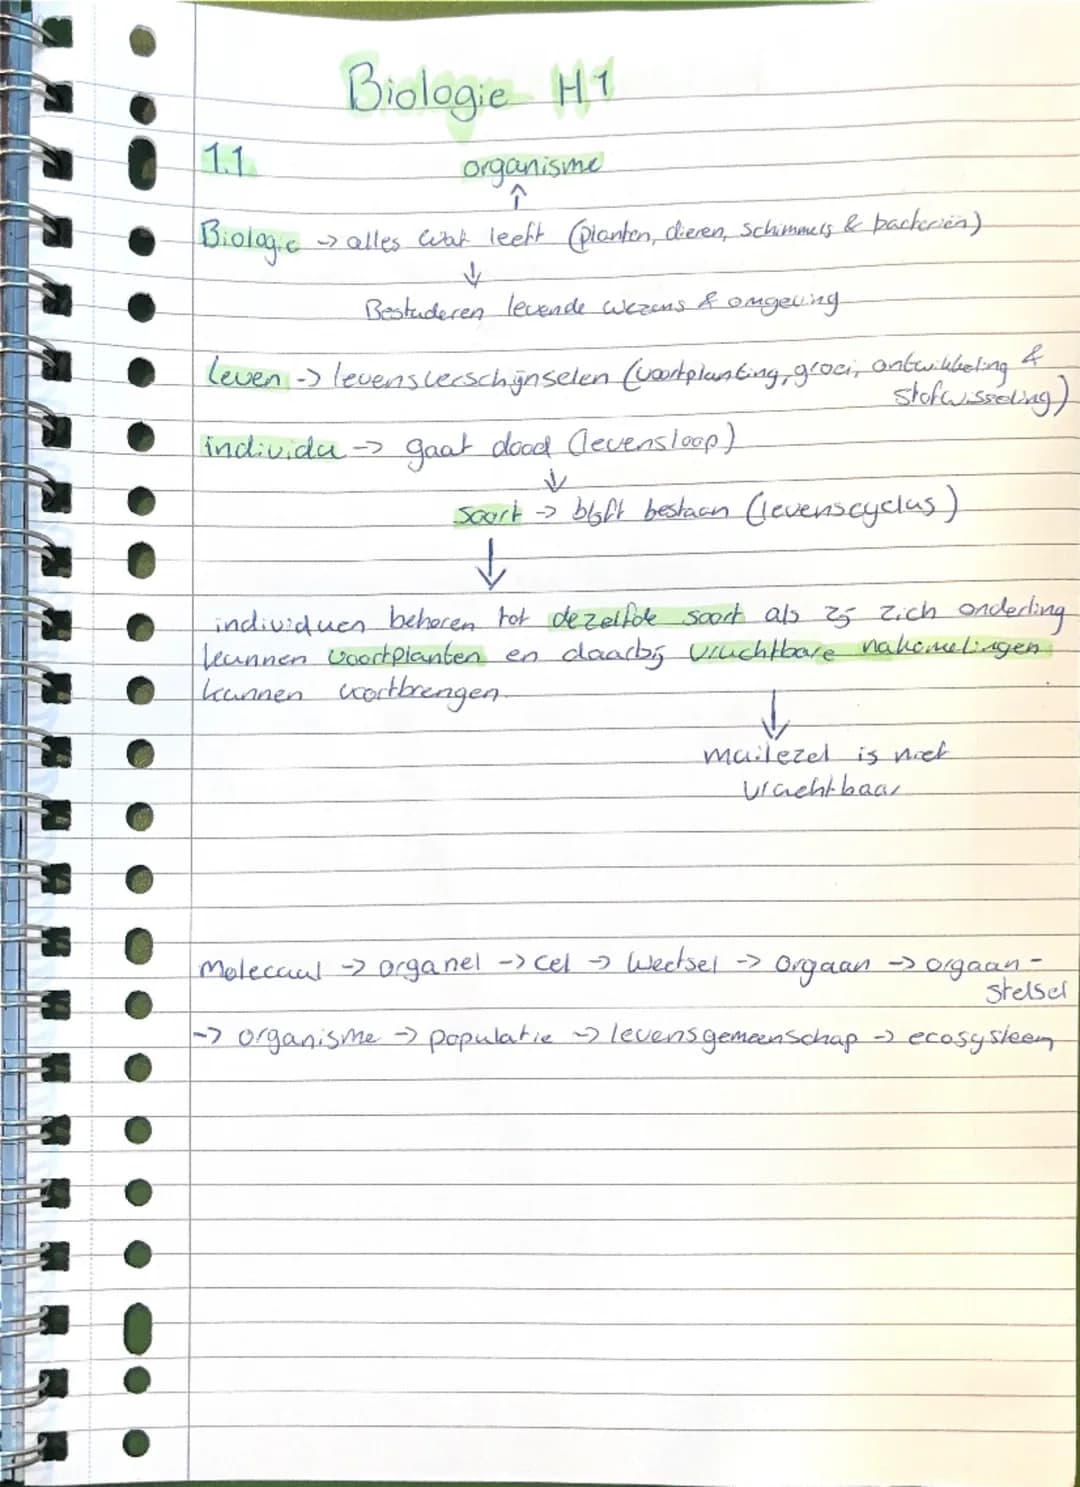 Biologie H1
1.1
organisme
↑
Biologie -> alles wat leeft (planten, dieren, schimmels & bacteriën)
↓
Bestuderen levende wezens & omgeving
leven -> levensverschijnselen (voortplanting, groei, ontwikkeling &
stofwisseling)
individu -> gaat dood (levensloop)
↓
soort -> blijft bestaan (levenscyclus)
↓
individuen behoren tot dezelfde soort als zij zich onderling
kunnen voortplanten en daarbij vruchtbare nakomelingen
kunnen voortbrengen.
↓
muilezel is niet
vruchtbaar
Molecuul -> organel -> cel -> Weefsel -> Orgaan -> orgaan-
stelsel
-> organisme -> populatie -> levensgemeenschap -> ecosysteem